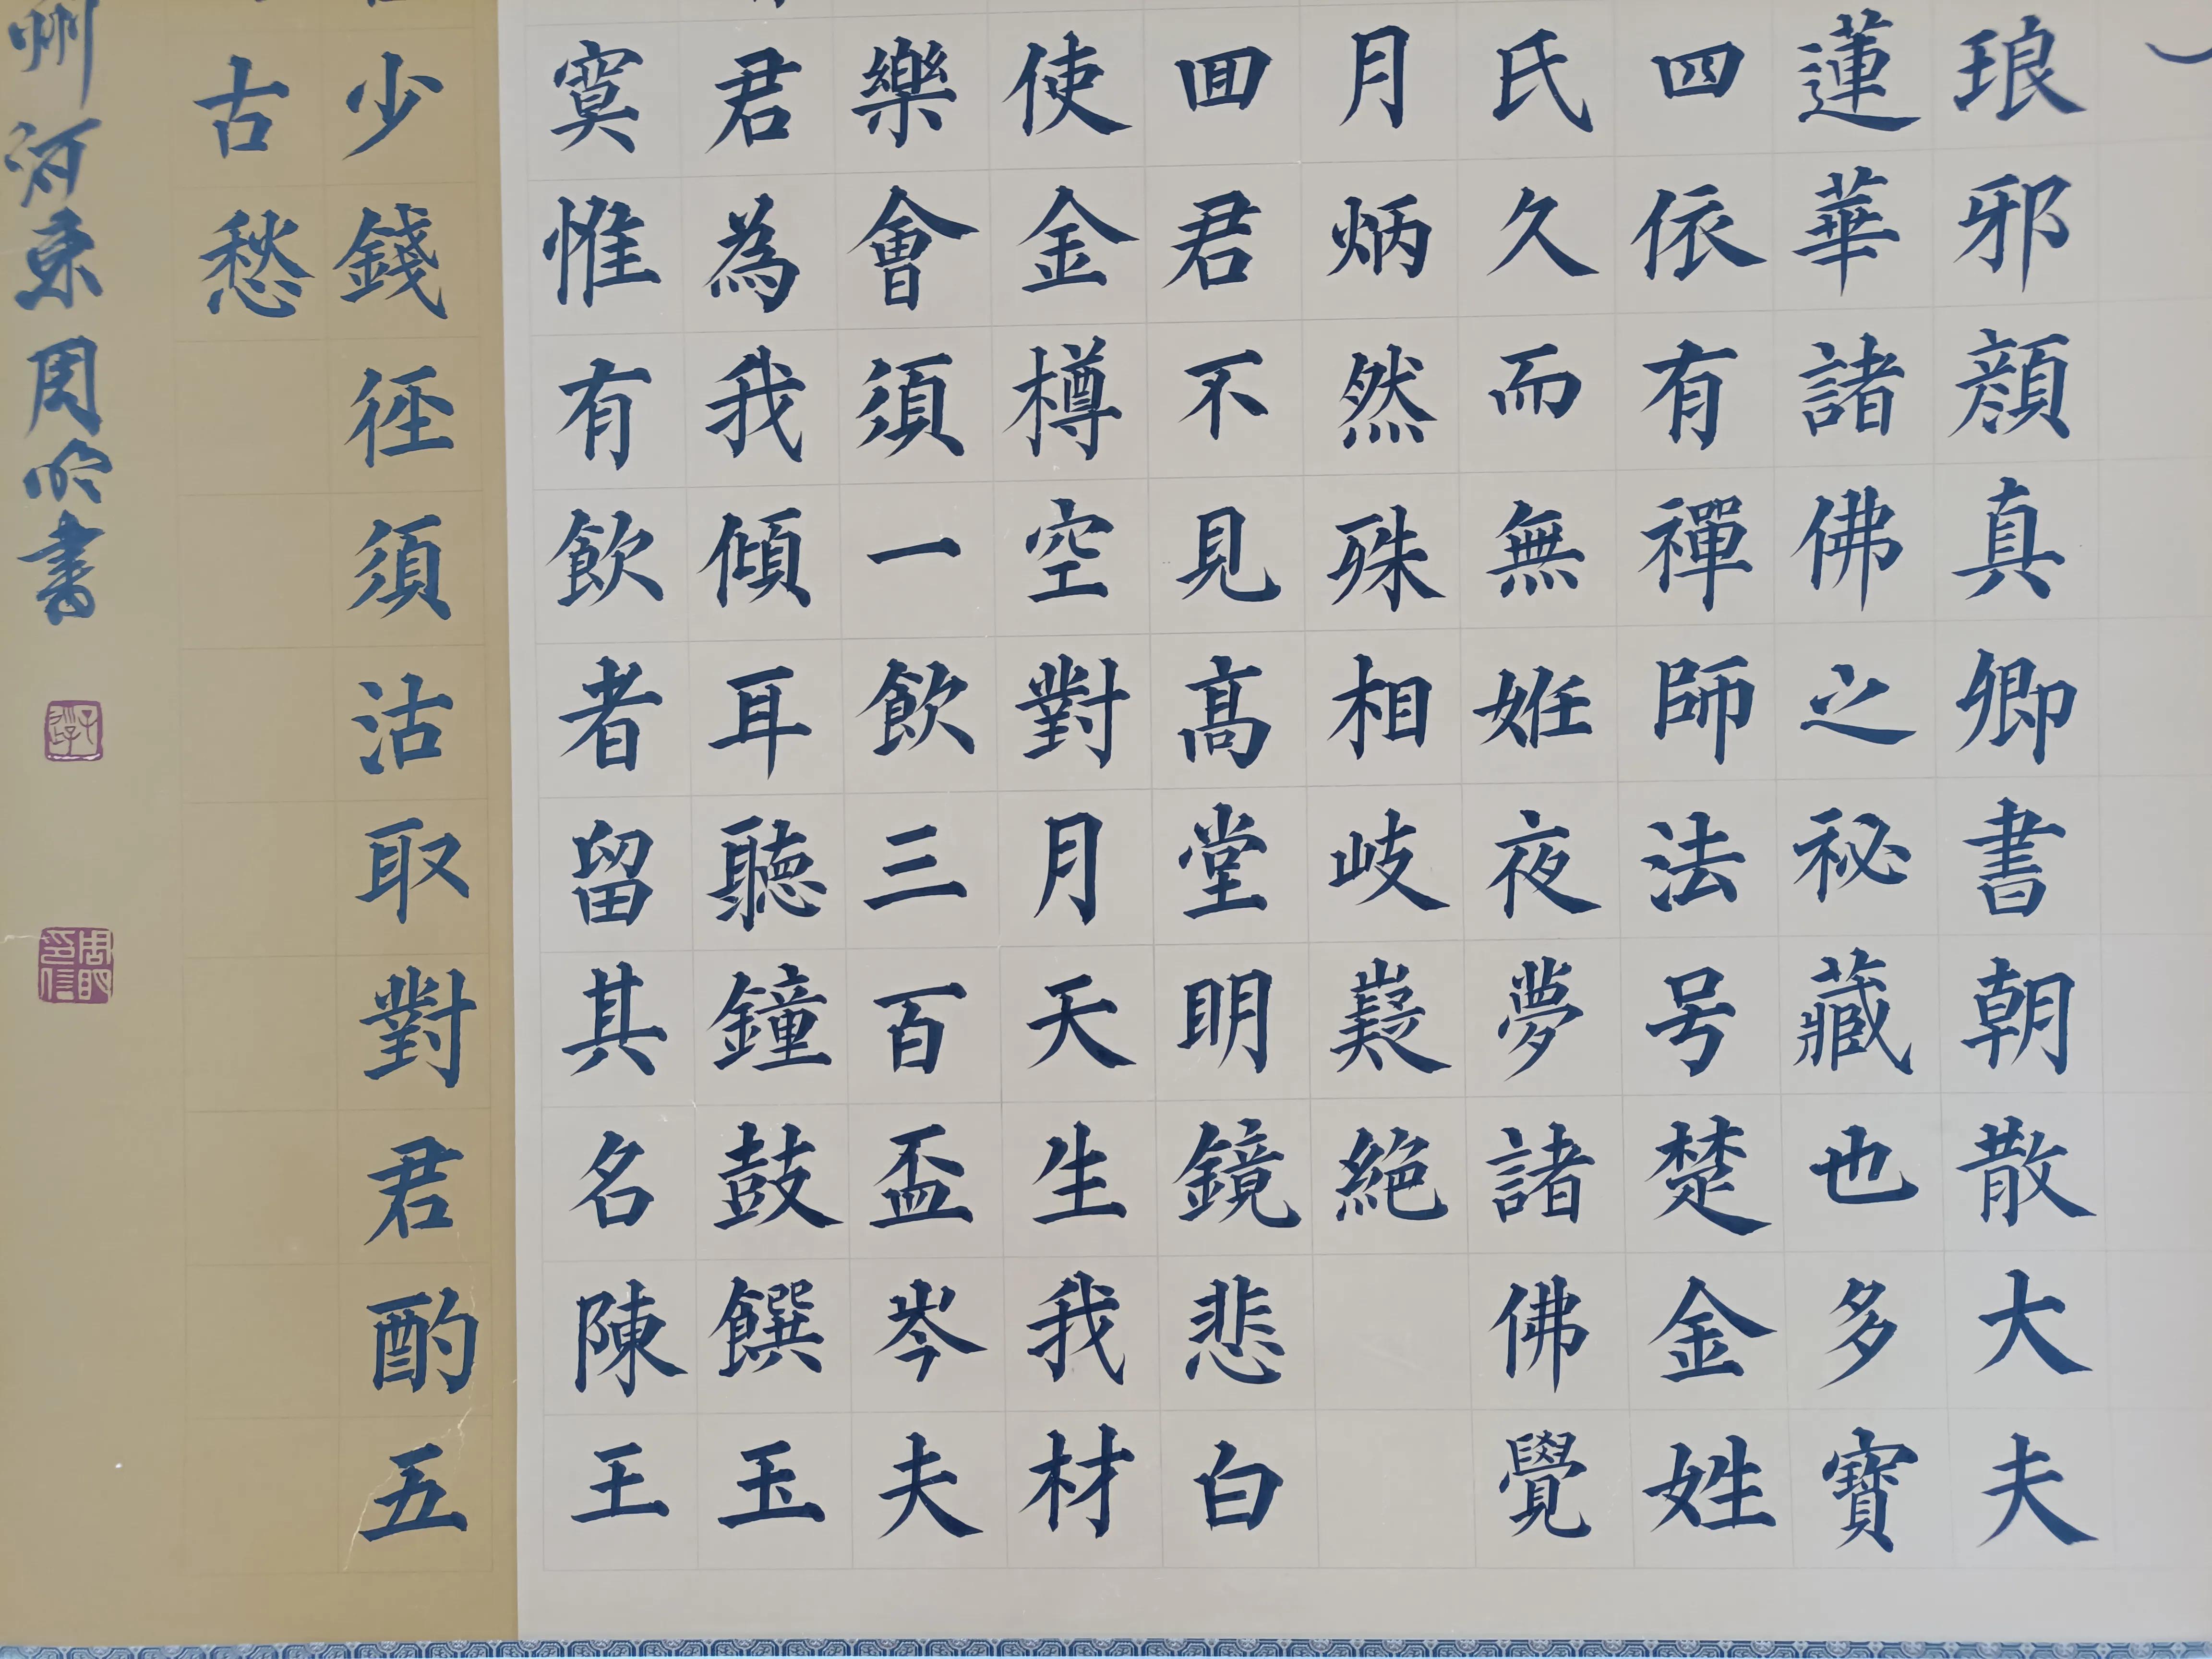 琅邪顔真卿書朝散大夫
蓮華諸佛之秘藏也多寶
四依有禪師法号楚金姓
氏久而無姙夜夢諸佛覺
月炳然殊相岐嶷絕
回君不見高堂明鏡悲白
使金樽空對月天生我材
樂會須一飲三百盃岑夫
君為我傾耳聽鐘鼓饌玉
寞惟有飲者留其名陳王
少錢徑須沽取對君酌五
古愁
州河東周明書